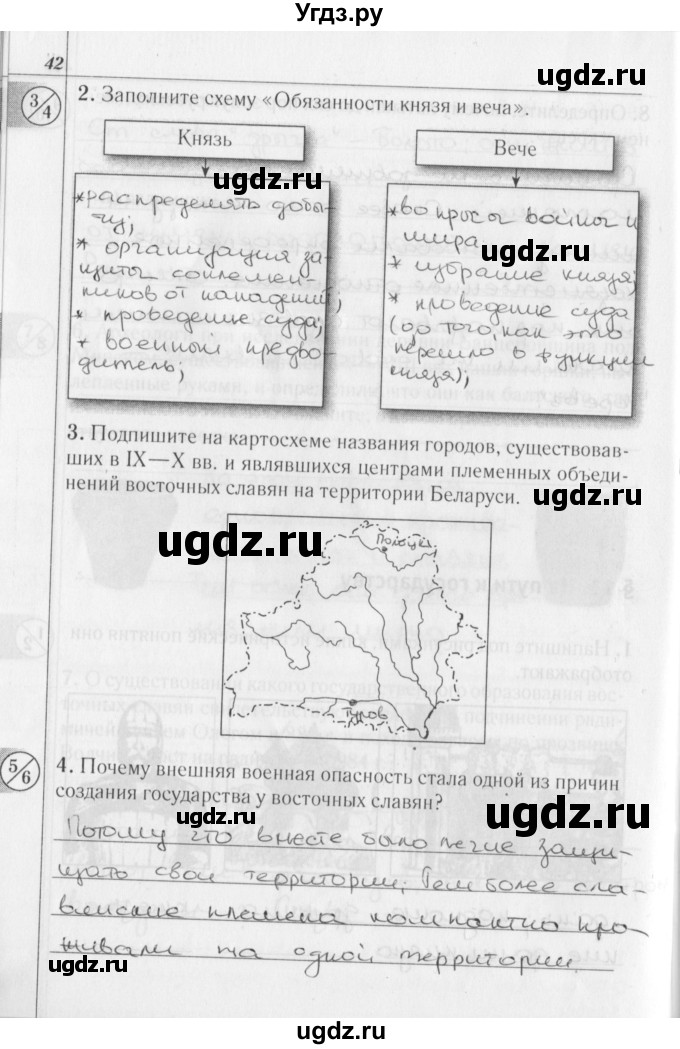 Угдз.ру
ugdz.ru
42
ugdz.ru
3/4
2. Заполните схему «Обязанности князя и веча».
ugdz.ru
Князь
Вече
ugdz.ru
* распределять добы-
чу;
* организация за-
щиты соплемен-
ников от нападений;
* проведение суда;
* военный предво-
дитель;
* вопросы войны и
мира
* избрание князя;
* проведение суда
(до того, как это
перешло в функции
князя);
ugdz.ru
ugdz.ru
ugdz.ru
3. Подпишите на картосхеме названия городов, существовав-
ших в IX—X вв. и являвшихся центрами племенных объеди-
нений восточных славян на территории Беларуси.
ugdz.ru
ugdz.ru
Полоцк
ugdz.ru
Туров
5/6
4. Почему внешняя военная опасность стала одной из причин
создания государства у восточных славян?
ugdz.ru
Потому что вместе было легче защи-
щать свои территории. Тем более сла-
вянские племена компактно про-
живали на одной территории
ugdz.ru
ugdz.ru
ugdz.ru
ugdz.ru